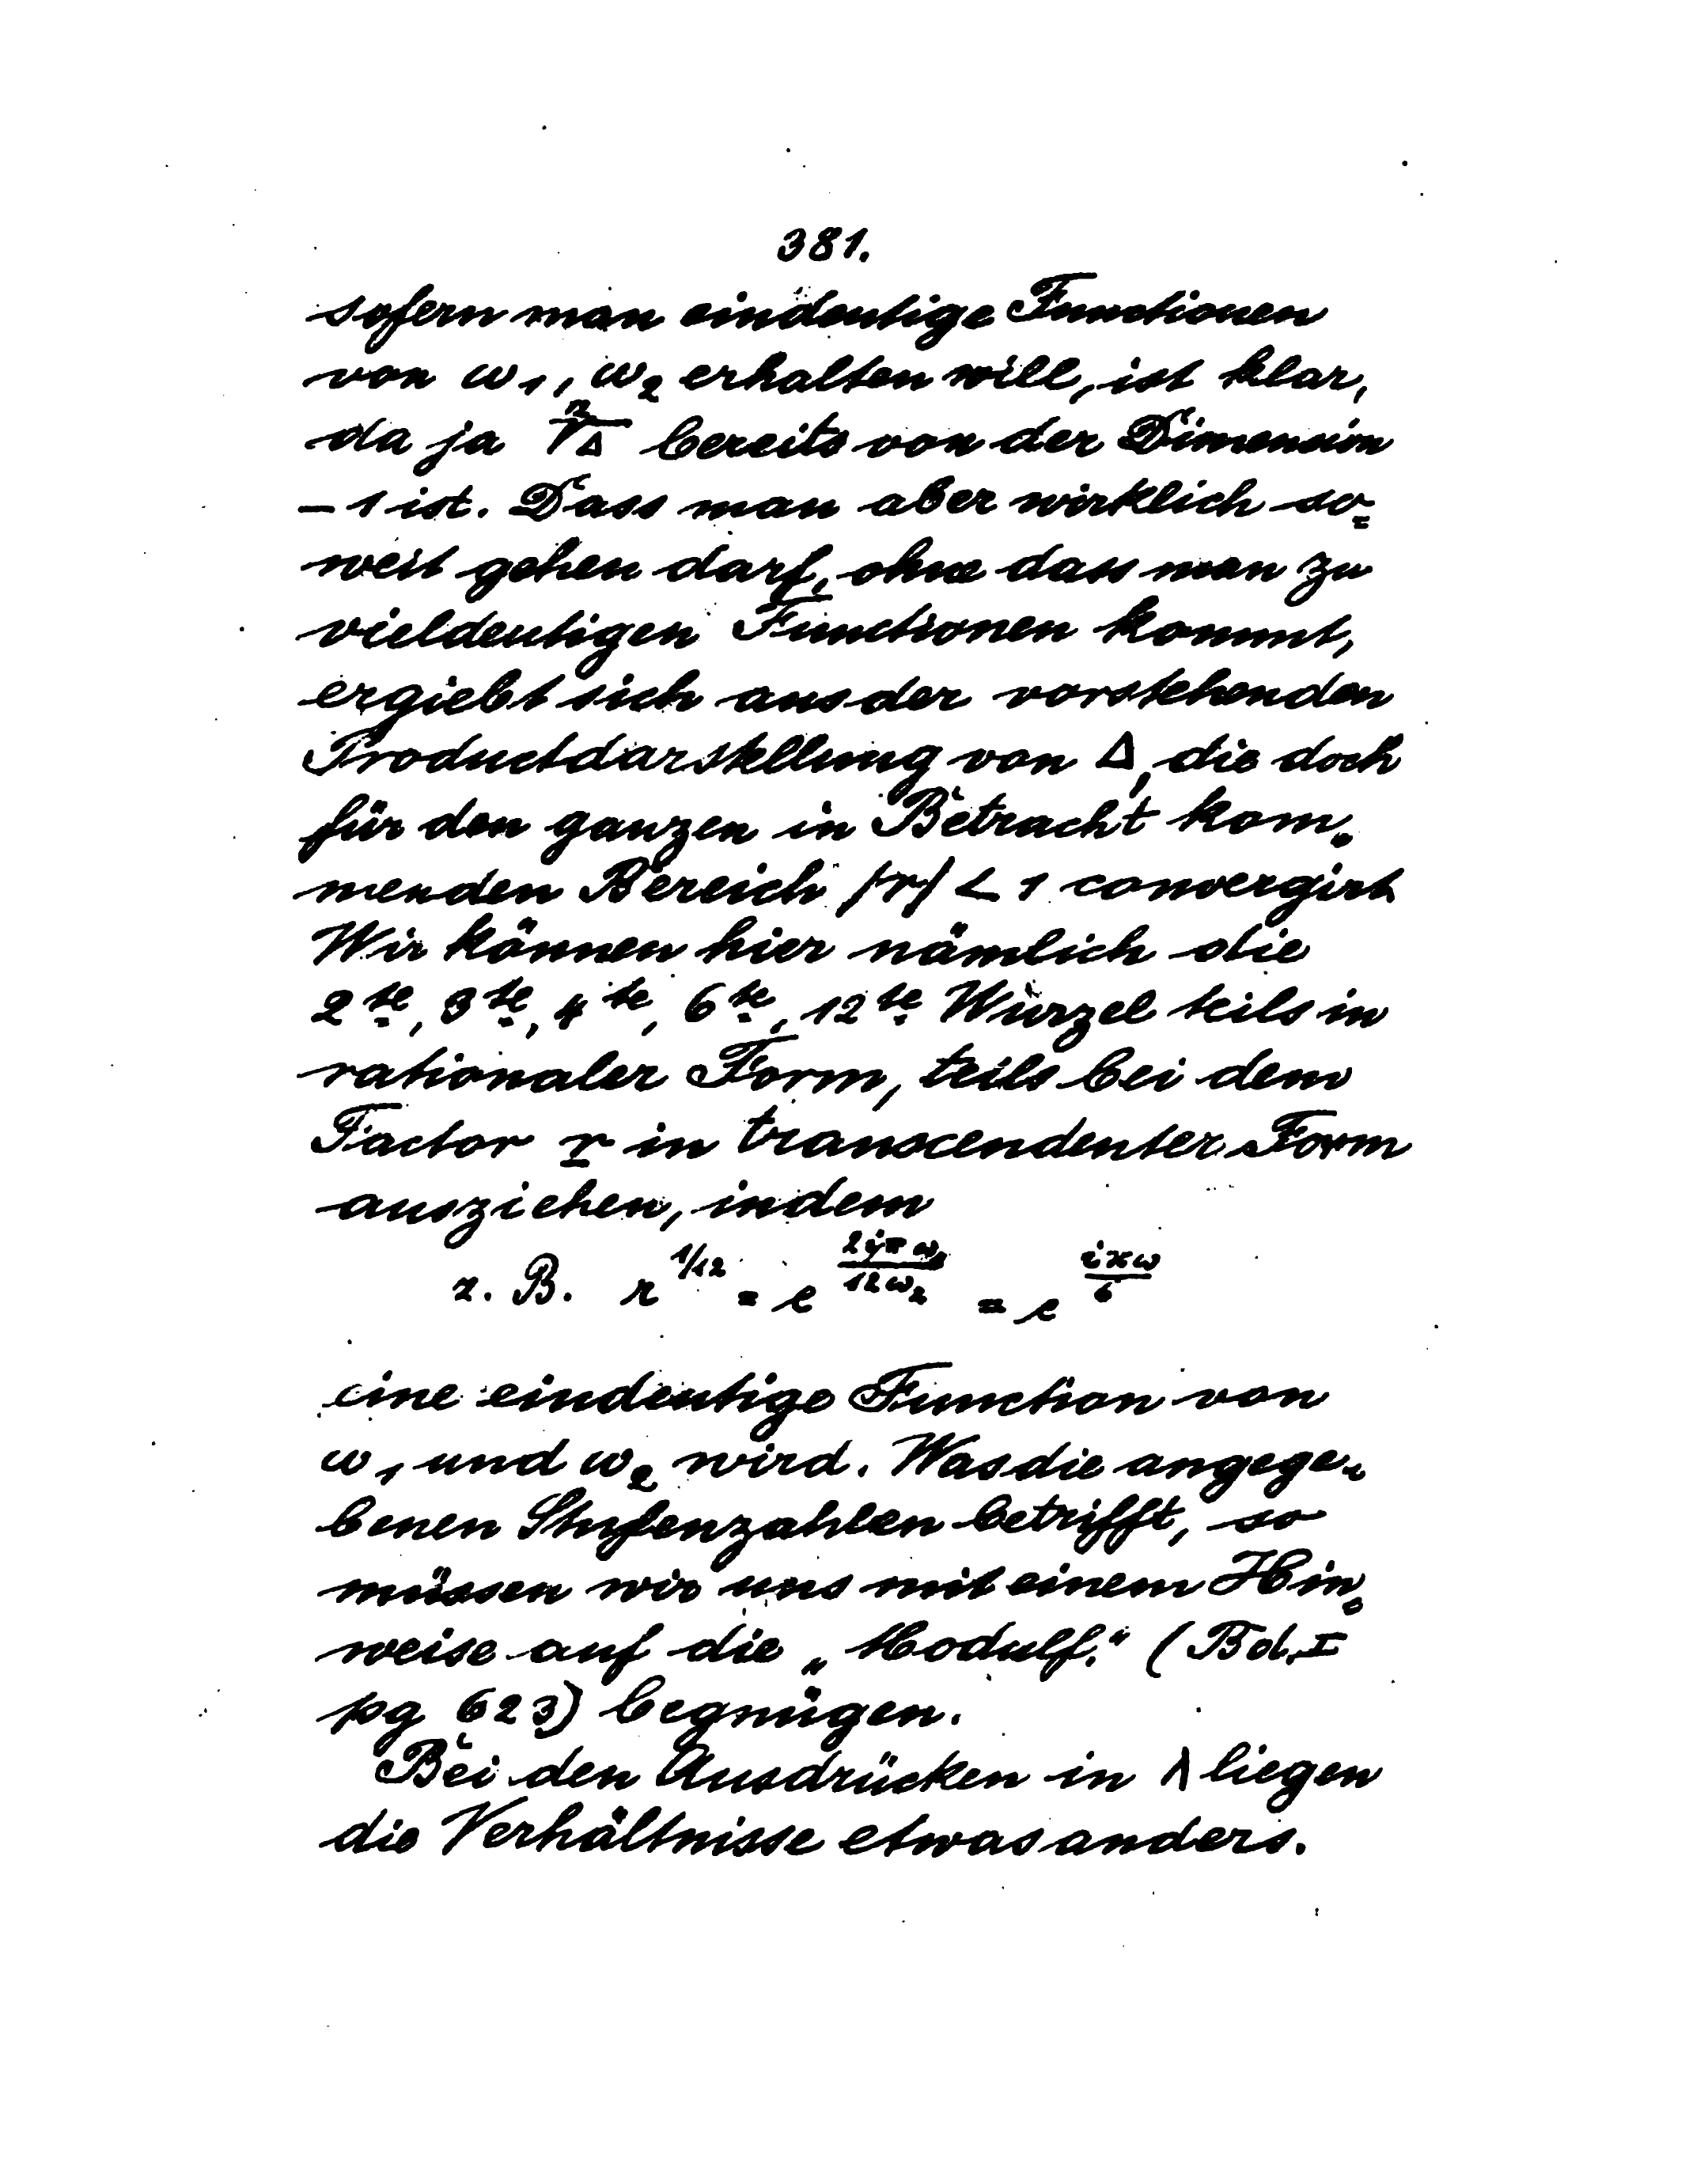 381.
sofern man eindeutige Functionen
von ω₁, ω₂ erhalten will, ist klar,
da ja ¹²√Δ bereits von der Dimension
– 1 ist. Dass man aber wirklich so=
weit gehen darf, ohne dass man zu
vieldeutigen Functionen kommt,
ergiebt sich aus der vorstehenden
Productdarstellung von Δ, die doch
für den ganzen in Betracht kom=
menden Bereich |r| < 1 convergirt.
Wir können hier nämlich die
2te, 3te, 4te, 6te, 12te Wurzel teils in
rationaler Form, teils bei dem
Factor r in transcendenter Form
ausziehen, indem
z. B. r^{1/12} = e^{\frac{2iπω_1}{12ω_2}} = e^{\frac{iπω}{6}}
eine eindeutige Function von
ω₁ und ω₂ wird. Was die angege=
benen Stufenzahlen betrifft, so
müssen wir uns mit einem Hin=
weise auf die „Modulf.“ (Bd. I
pg 623) begnügen.
Bei den Ausdrücken in λ liegen
die Verhältnisse etwas anders.